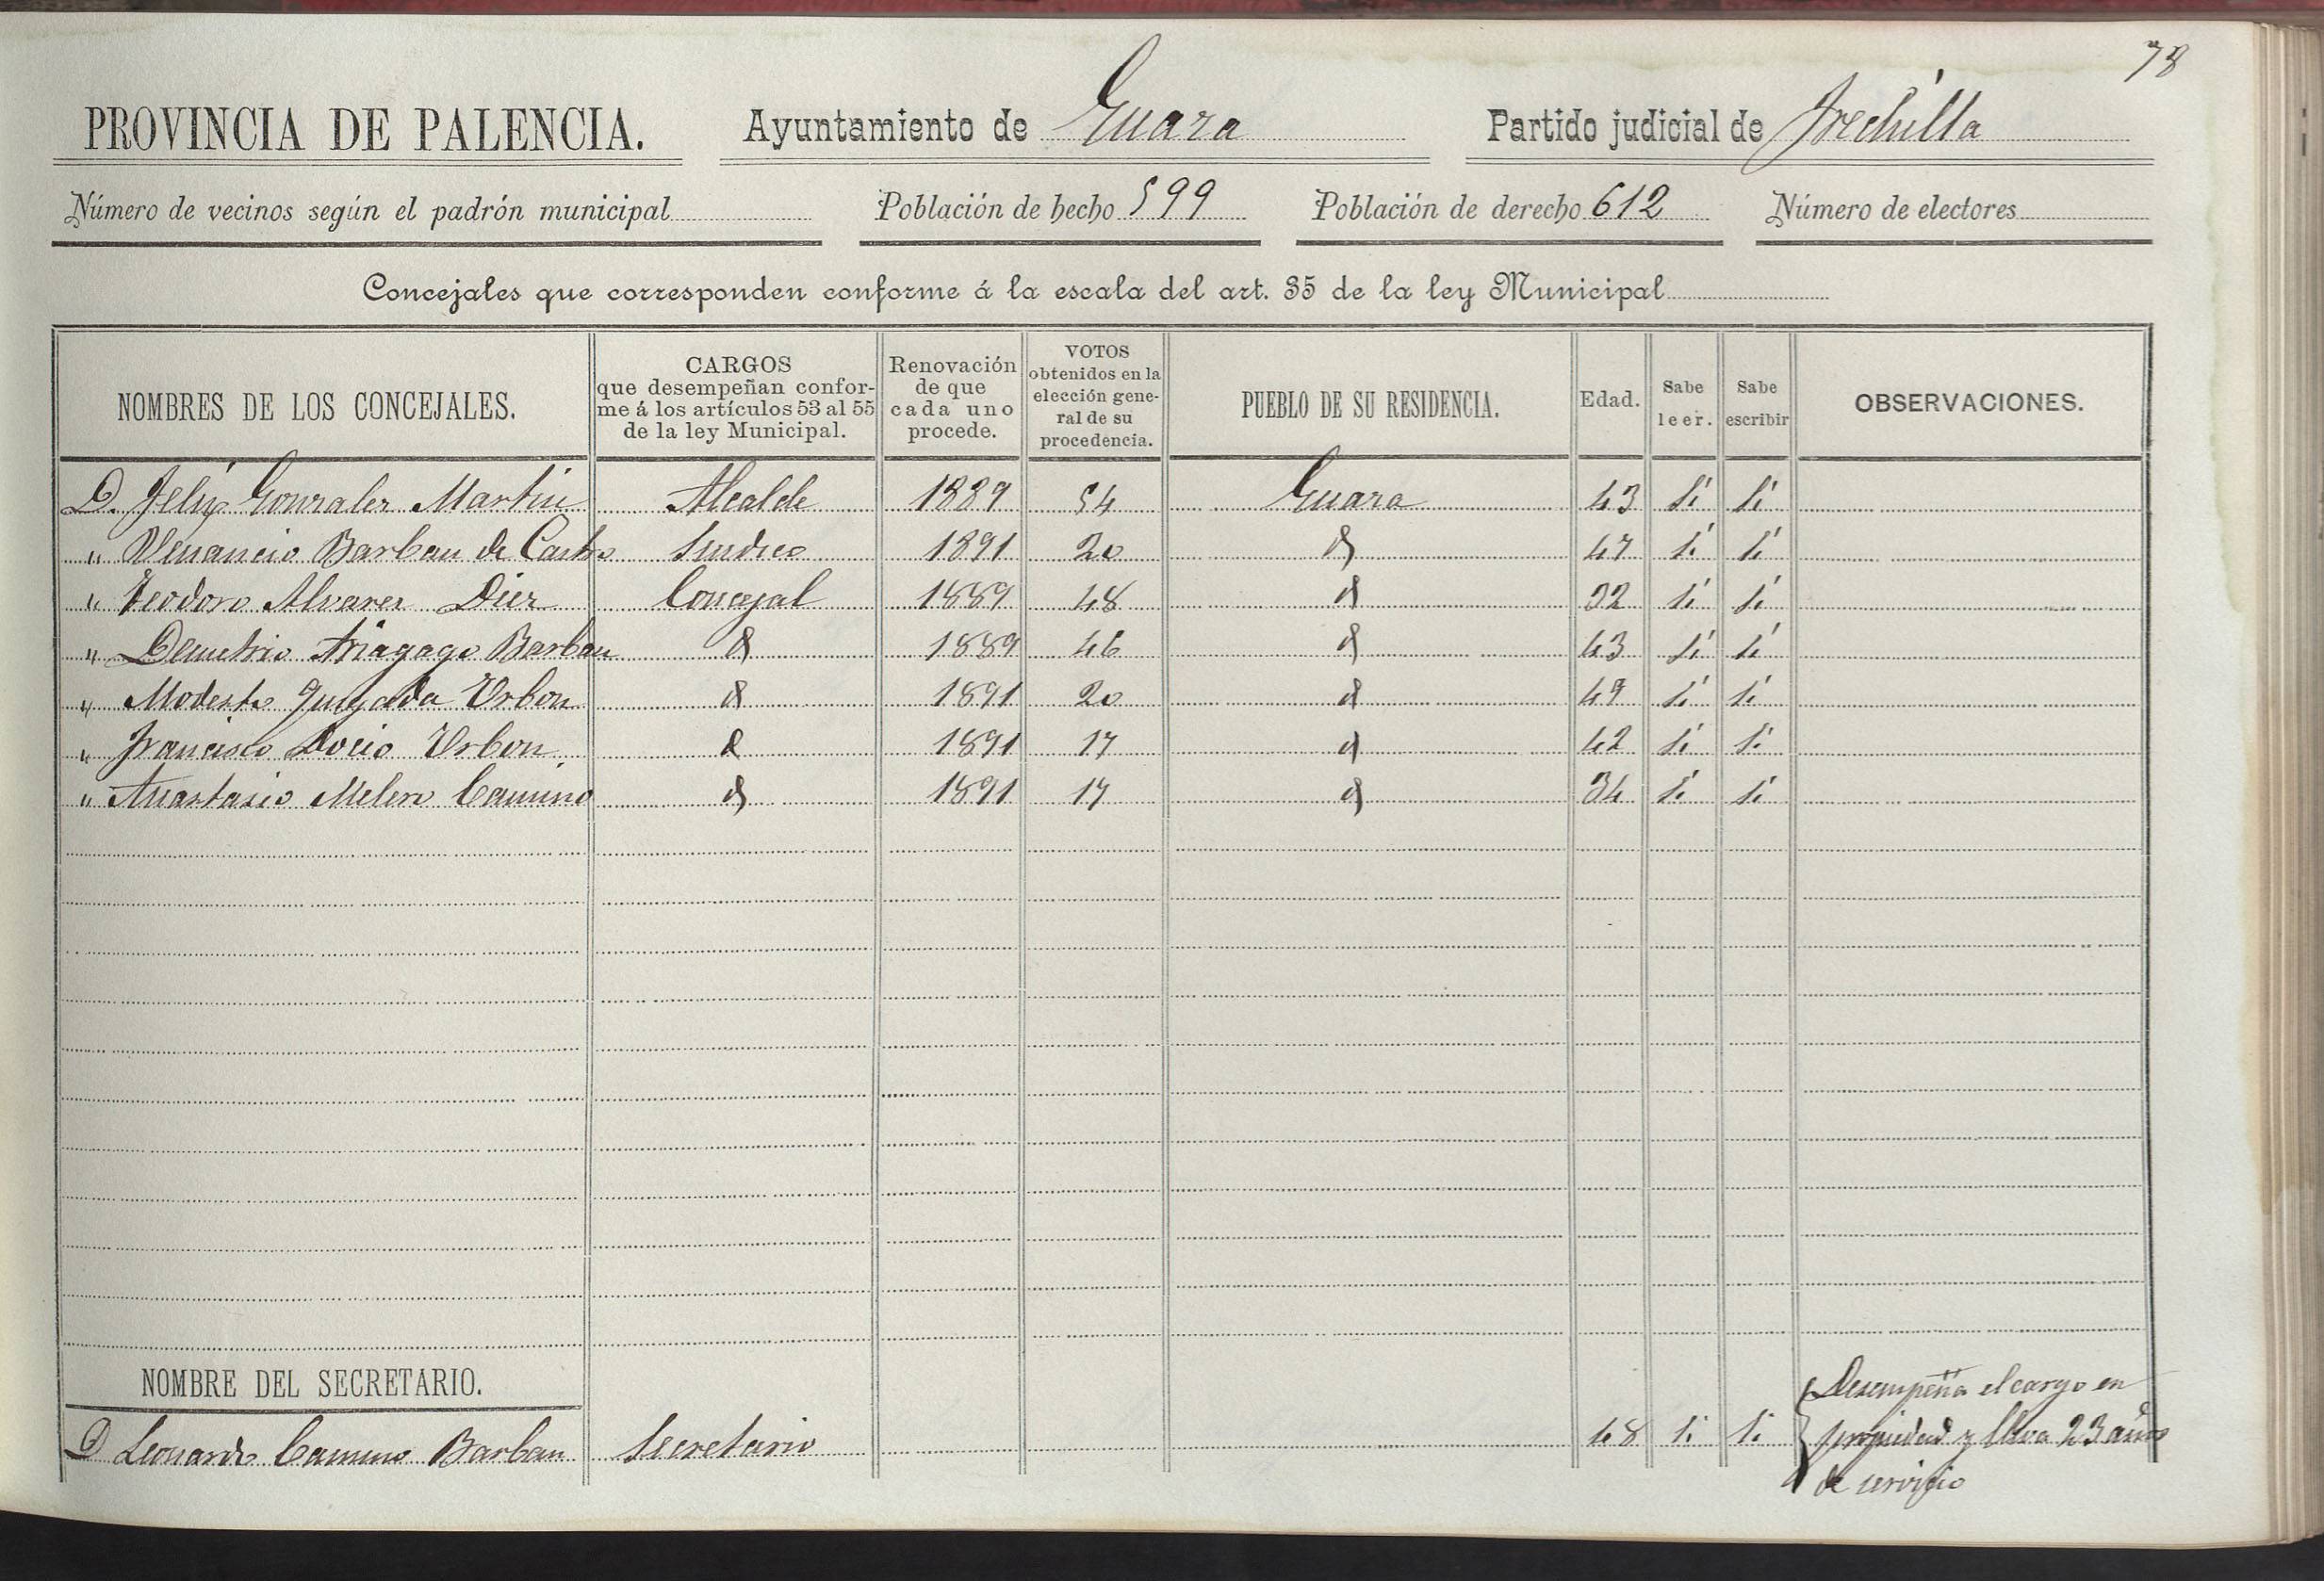 78
PROVINCIA DE PALENCIA. Ayuntamiento de Guaza Partido judicial de Frechilla
Número de vecinos según el padrón municipal Población de hecho 599 Población de derecho 612 Número de electores
Concejales que corresponden conforme á la escala del art. 35 de la ley Municipal
NOMBRES DE LOS CONCEJALES. CARGOS que desempeñan conforme á los artículos 53 al 55 de la ley Municipal. Renovación de que cada uno procede. VOTOS obtenidos en la elección general de su procedencia. PUEBLO DE SU RESIDENCIA. Edad. Sabe leer. Sabe escribir OBSERVACIONES.
D. Felip Gonzalez Martin Alcalde 1889 54 Guaza 43 Si Si
" Venancio Barban de Castro Sindico 1891 20 d 47 Si Si
" Teodoro Alvarez Diez Concejal 1889 48 d 32 Si Si
" Demetrio Barban d 1889 46 d 43 Si Si
" Modesto Quijada Urbon d 1891 20 d 49 Si Si
" Francisco Docio Urbon d 1891 17 d 42 Si Si
" Anastasio Melero Camino d 1891 17 d 34 Si Si
NOMBRE DEL SECRETARIO.
D Leonardo Camino Barban Secretario 48 Si Si Desempeña el cargo en
propiedad y lleva 23 años
de servicio